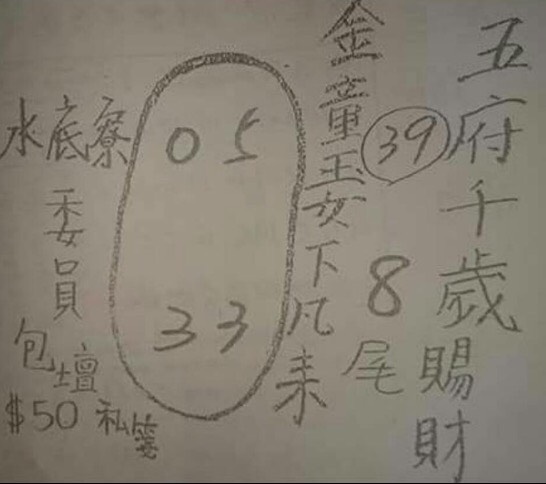 五府千歲賜財
39
8尾
金童玉女下凡來
05
33
水底寮
委員
包壇
$50 私簽